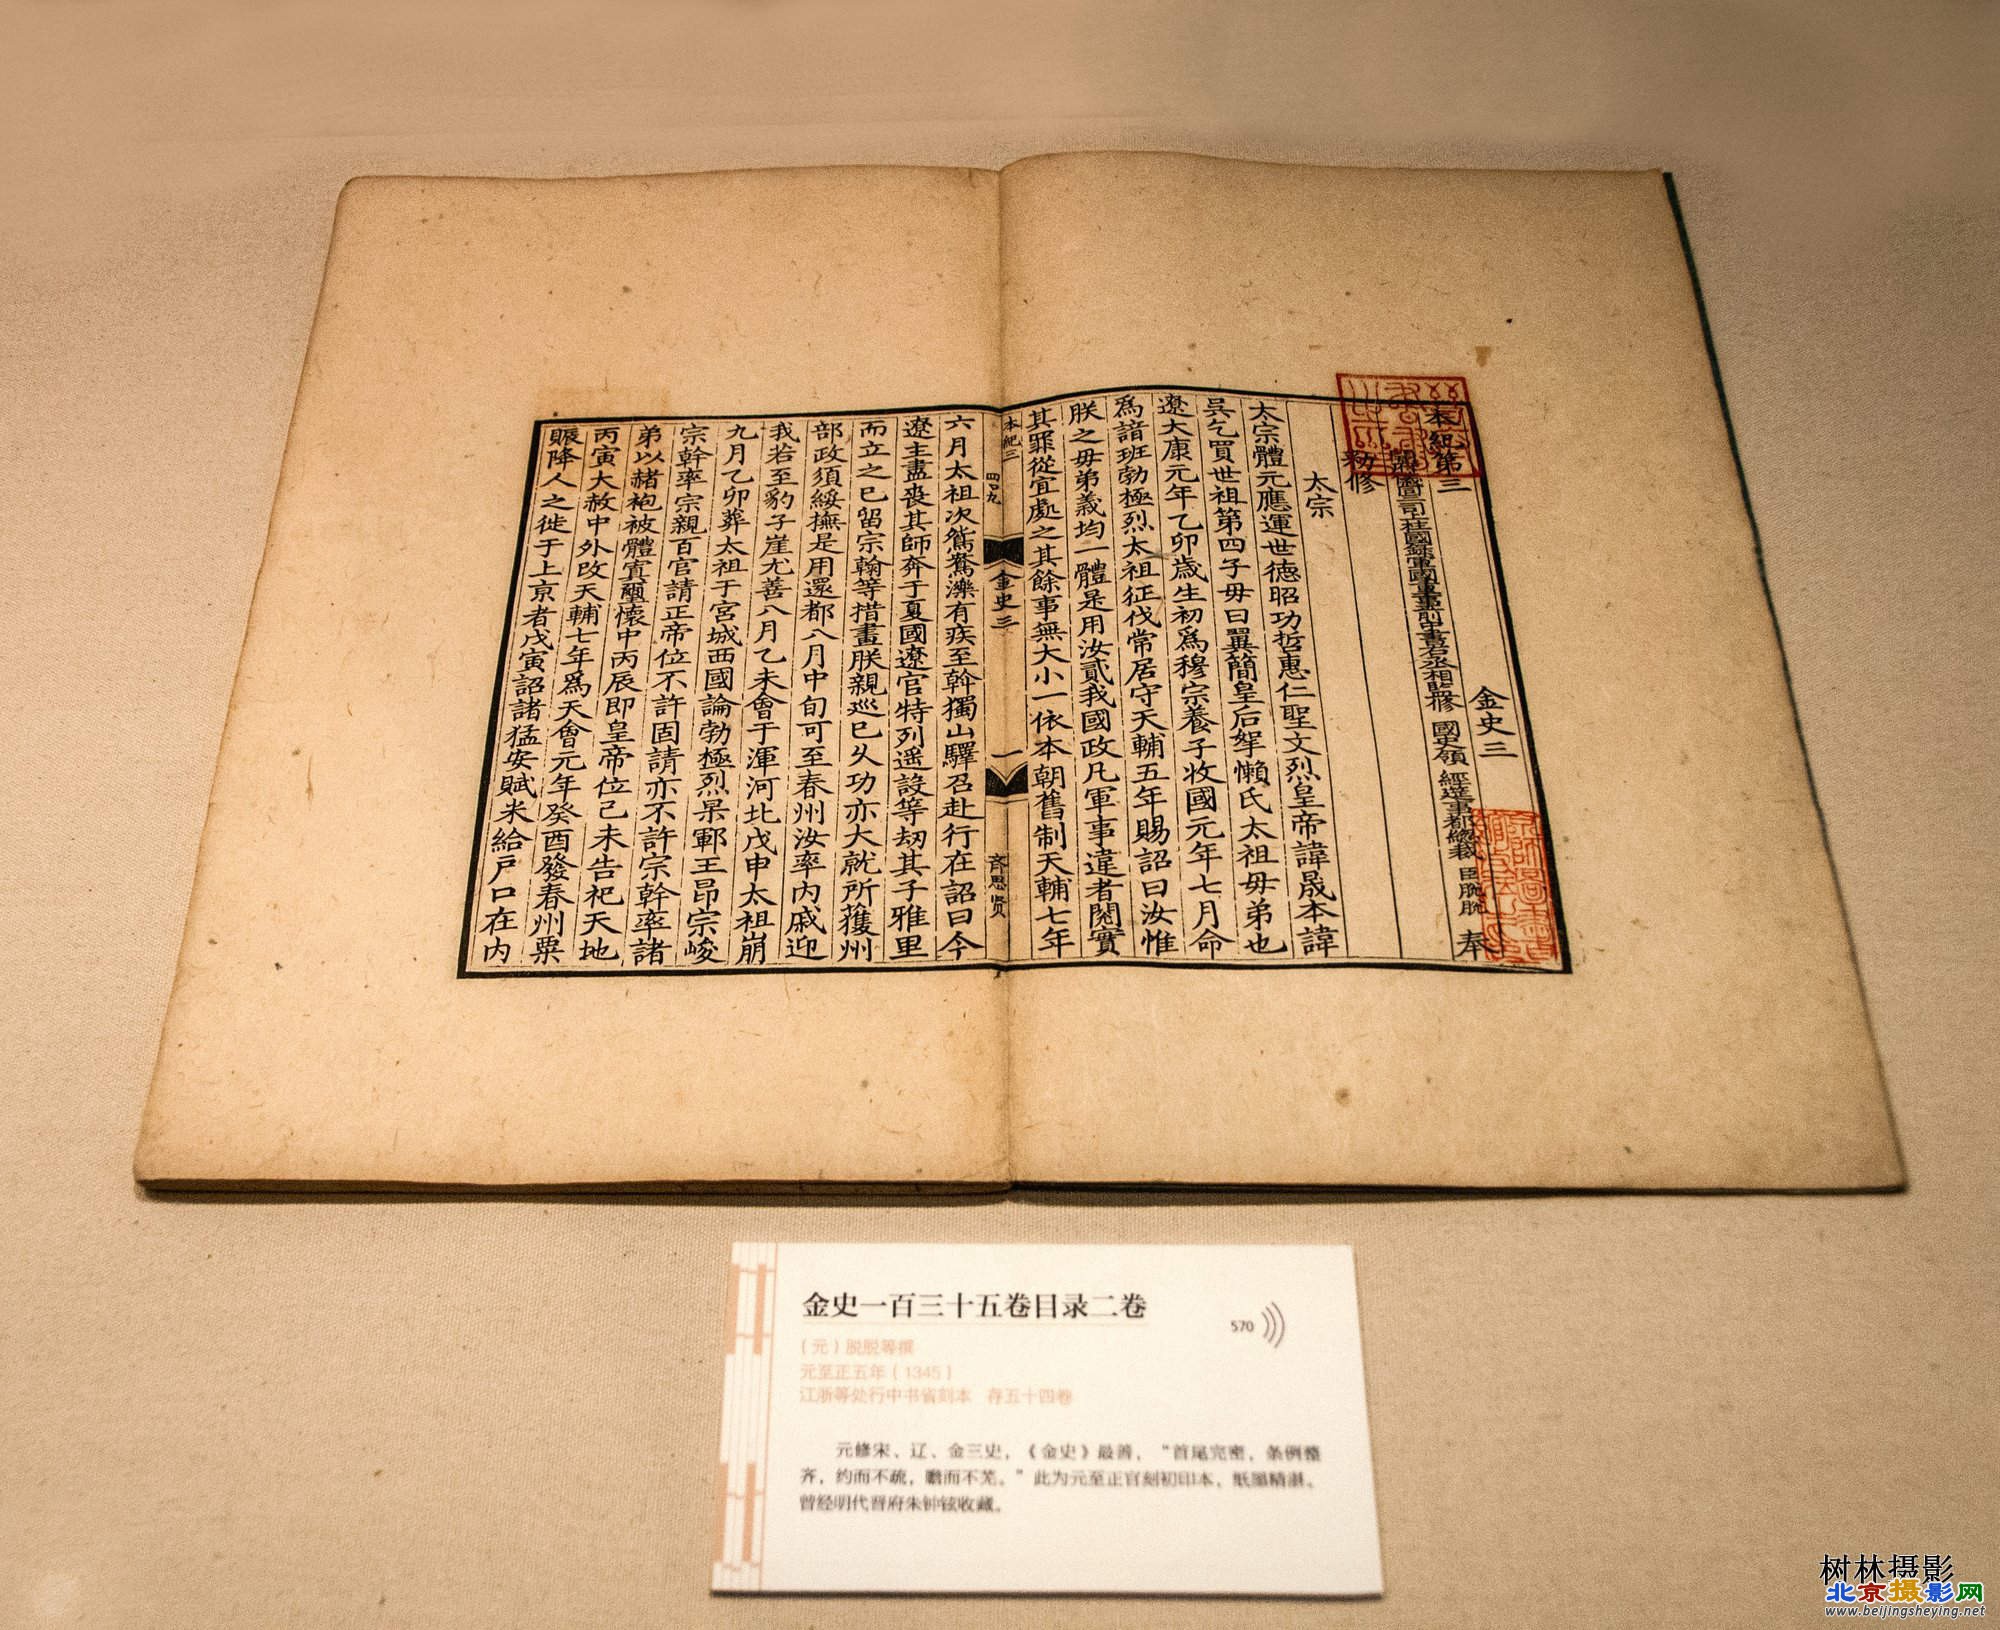 本紀第三
金史三
開府儀同三司上柱國錄軍國重事前中書右丞相監修國史領經筵事都總裁臣脫脫奉
勑修
太宗
太宗體元應運世德昭功哲惠仁聖文烈皇帝諱晟本諱
吳乞買世祖第四子母曰翼簡皇后拏懶氏太祖母弟也
遼大康元年乙卯歲生初爲穆宗養子收國元年七月命
爲諳班勃極烈太祖征伐常居守天輔五年賜詔曰汝惟
朕之母弟義均一體是用汝貳我國政凡軍事違者閱實
其罪從宜處之其餘事無大小一依本朝舊制天輔七年
本紀三
四百九
金史三
一
齐思贤
六月太祖次鴛鴦濼有疾至斡獨山驛召赴行在詔曰今
遼主盡喪其師奔于夏國遼官特列遥設等劫其子雅里
而立之已留宗翰等措畫朕親巡已久功亦大就所獲州
部政須綏撫是用還都八月中旬可至春州汝率內戚迎
我若至豹子崖尤善八月乙未會于渾河北戊申太祖崩
九月乙卯葬太祖于宮城西國論勃極烈杲鄆王昂宗峻
宗幹率宗親百官請正帝位不許固請亦不許宗幹率諸
弟以赭袍被體寘璽懷中丙辰即皇帝位己未告祀天地
丙寅大赦中外改天輔七年爲天會元年癸酉發春州粟
賑降人之徙于上京者戊寅詔諸猛安賦米給戶口在內
金史一百三十五卷目录二卷
570
（元）脱脱等撰
元至正五年（1345）
江浙等处行中书省刻本 存五十四卷
元修宋、辽、金三史，《金史》最善，“首尾完密，条例整
齐，约而不疏，赡而不芜。”此为元至正官刻初印本，纸墨精湛。
曾经明代晋府朱钟铉收藏。
树林摄影
北京摄影网
www.beijingsheying.net